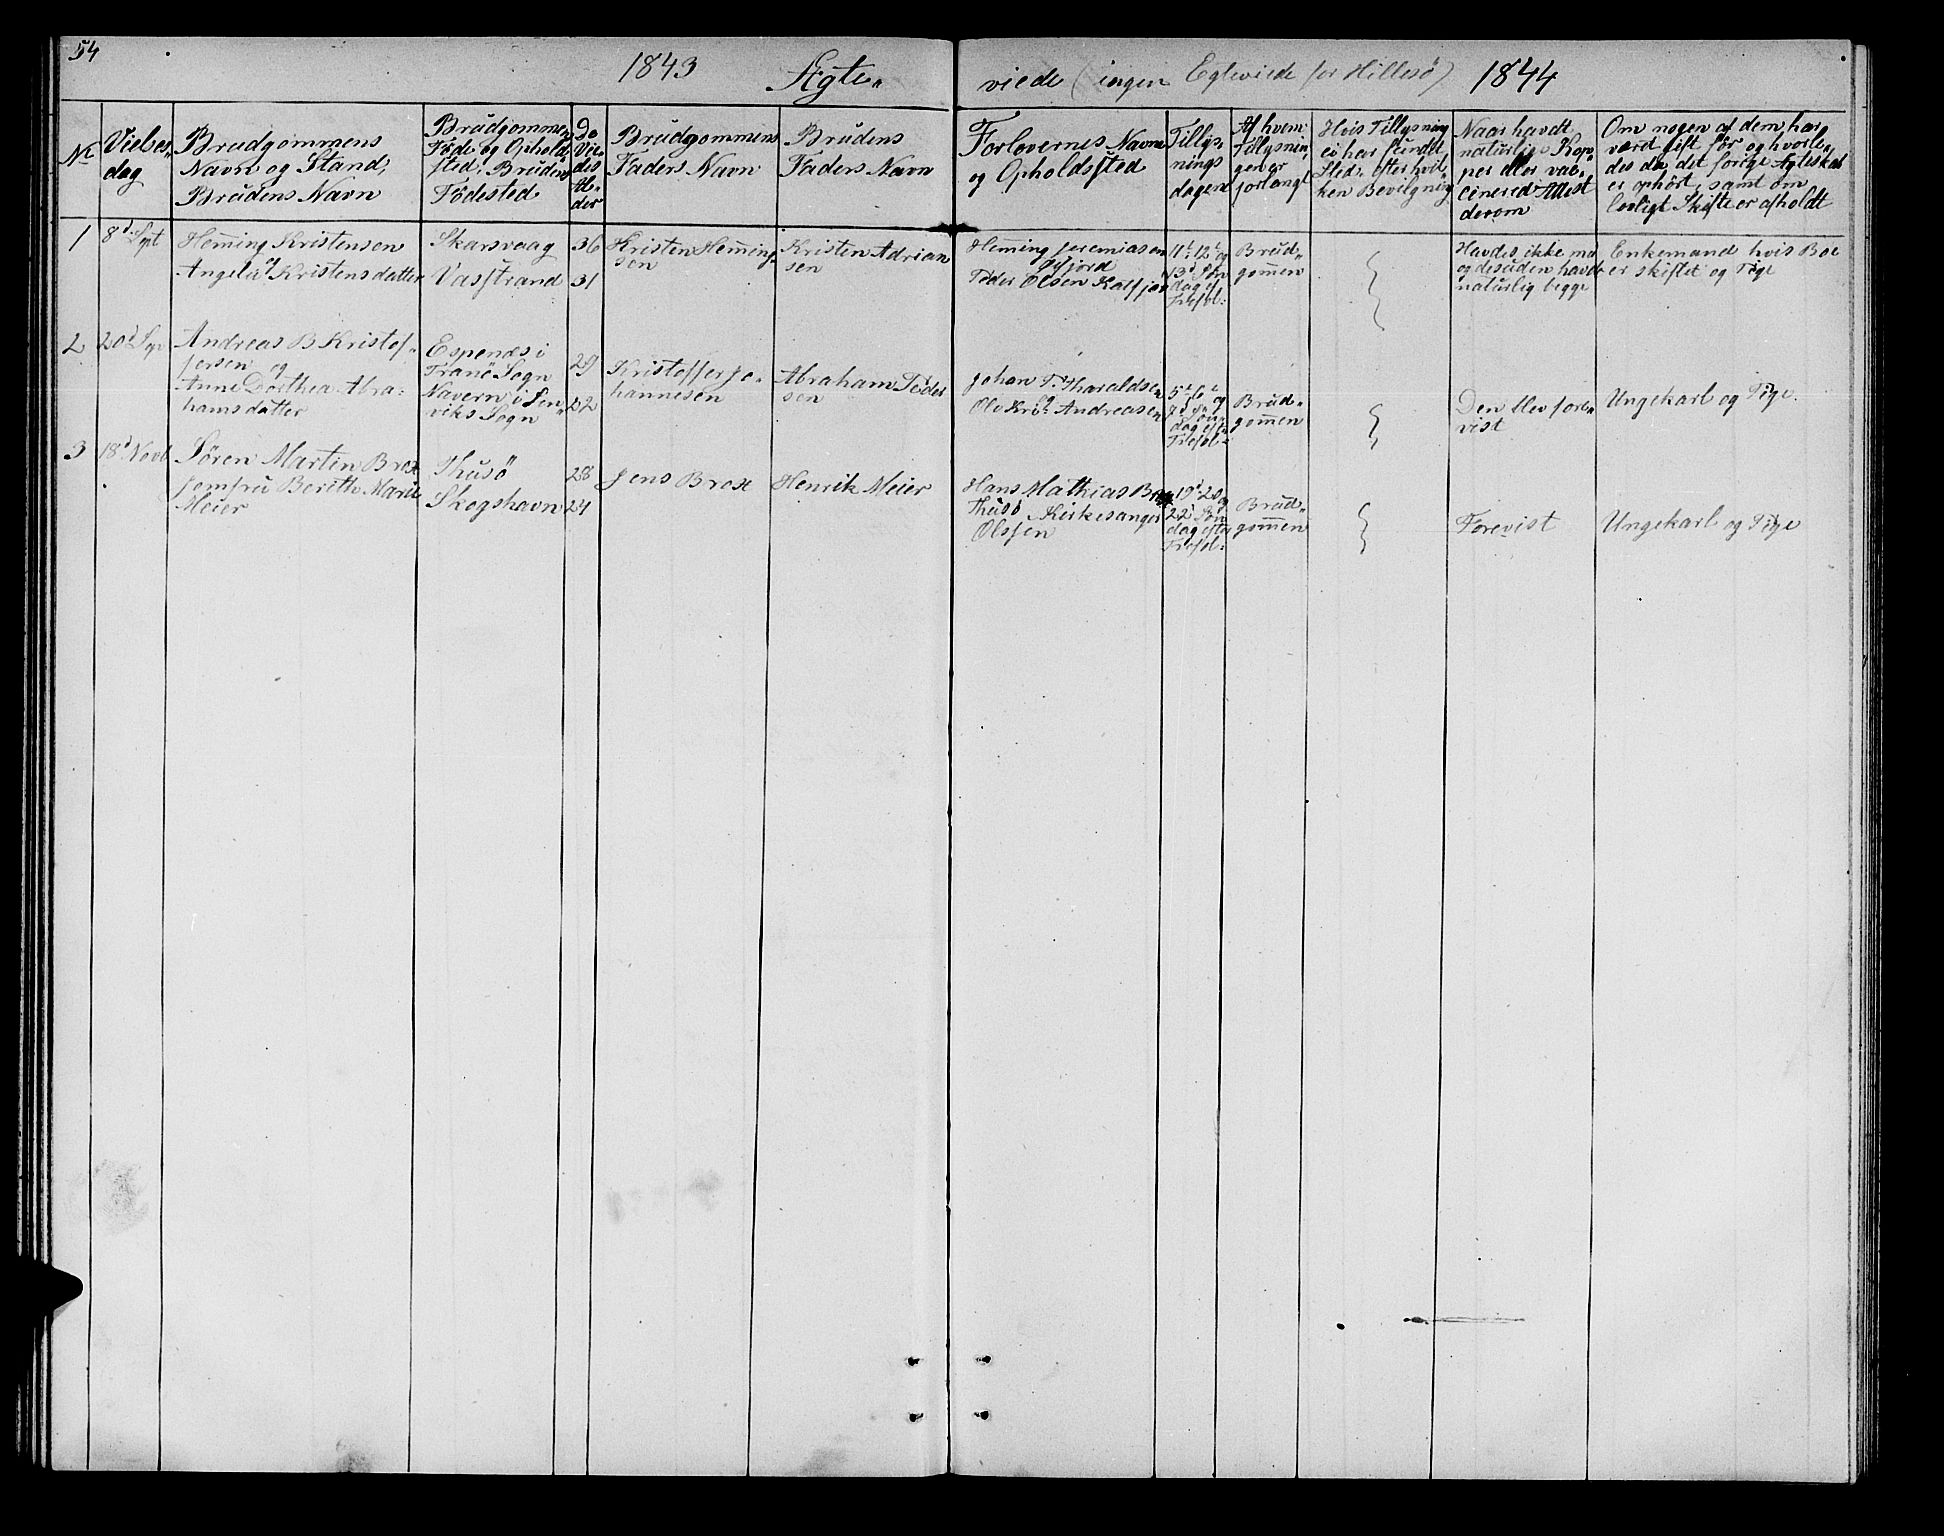 54
1843 Ægte„
viede (ingen Egteviede for Hillesö) 1844
Nr
Vielses„
dag
Brudgommens
Navn og Stand,
Brudens Navn
Brudgommens
Föde og Ophold„
sted; Brudens
Födested
De
Vie„
des
Al„
der
Brudgommens
Faders Navn
Brudens
Faders Navn
Forlovernes Navne
og Opholdsted
Tillys„
nings
dagene
Af hvem
Tillysnin„
gen er
forlangt
Hvis Tillysning
ei har fundet
Sted, efter hvil„
ken Bevilgning
Naar havdt
naturlige Kop„
per eller vac„
cinered Attest
derom
Om nogen af dem har
værd gift för, og hvorle„
des da det forige Ægteskab
er ophört, samt om
lovligt Skifte er afholdt
1
8d Sept
Heming Kristensen
og
Angelia Kristensdatter
Skarsvaag
Vasstrand
36
31
Kristen Heming„
sen
Kristen Adrian
sen
Heming Jeremiasen
Peder Olsen Kalfjor
11te 12te og
13d Søn
dag ef
Trefol:
Brud„
gommen
Havdes ikke med
og desuden havdt
naturlig begge
Enkemand hvis Boe
er skiftet og Pige
2
20d Sep
Andreas B Kristof„
fersen og
Anne Dorthea Abra:
hamsdatter
Espenæs i
Tranö Sogn
Navern i Len„
viks Sogn
29
22
Kristoffer Jo„
hannesen
Abraham Peder
sen
Johan P. Tharaldsen
og
Ole Kr: Andreasen
5te 6te og
7d Søn„
dag efter
Trefol:
Brud„
gommen
Den blev fore„
vist
Ungekarl og Pige.
3
18d Novb
Søren Martin Brox
Jomfru Berith Marie
Meier
Thusö
Skogshavn
28
24
Jens Brox
Henrik Meier
Hans Mathias Brox
Thusö Kirkesanger
Olssen
19d 20 og
22d Søn
dag efter
Trefol:
Brud„
gommen
Forevist
Ungekarl og Pige